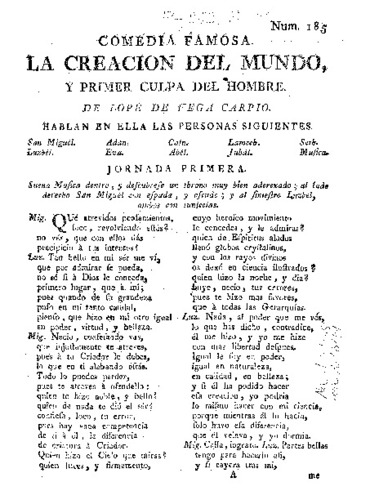 Num. 185
COMEDIA FAMOSA.
LA CREACION DEL MUNDO,
Y PRIMER CULPA DEL HOMBRE.
DE LOPE DE VEGA CARPIO.
HABLAN EN ELLA LAS PERSONAS SIGUIENTES.
San Miguel. Adan. Cain. Lamech. Seth.
Luzbel. Eva. Abel. Jubal. Musica.
JORNADA PRIMERA.
Suena Musica dentro, y descubrese un throno muy bien aderezado; al lado
derecho San Miguel con espada, y escudo; y al siniestro Luzbel,
ambos con tunicelas.
Mig. QUé atrevidos pensamientos,
loco, revolviendo estás?
no vés, que con ellos dás
precipicio à tus intentos?
Luz. Tan bello en mi sér me ví,
que por admirar se pueda,
no sé si à Dios le conceda,
primero lugar, que à mi;
pues quando de su grandeza
puso en mi tanto caudal,
pienso, que hizo en mi otro igual
en poder, virtud, y belleza.
Mig. Necio, confiado vas,
que injustamente te atreves,
pues à tu Criador le debes,
lo que en tí alabando estás.
Todo lo puedes perder,
pues te atreves à ofendello:
quien te hizo noble, y bello?
quien de nada te dió el sér?
confiesa, loco, tu error,
pues hay vana competencia
de tí à él, la diferencia
de criatura à Criador.
Quien hizo el Cielo que miras?
quien luces, y firmamento,
cuyo heroico movimiento
le concedes, y le admiras?
quien de Espiritus alados
llenó globos crystalinos,
y con los rayos divinos
os dexó en ciencia ilustrados?
quien hizo la noche, y dia?
huye, necio, tus errores,
pues te hizo mas favores,
que à todas las Gerarquías.
Luz. Nada, al poder que me vés,
lo que has dicho, contradice,
él me hizo, y yo me hice
con mas libertad despues.
Igual le soy en poder,
igual en naturaleza,
en calidad, en belleza;
y si él ha podido hacer
esa creacion, yo podria
lo mismo hacer con mi ciencia,
porque mientras en diferencia,
solo huvo esa diferencia,
que él velava, y yo dormia.
Mig. Calla, ingrato. Luz. Partes bellas
tengo para hacerlo así,
y si cayera tras mi,
A me